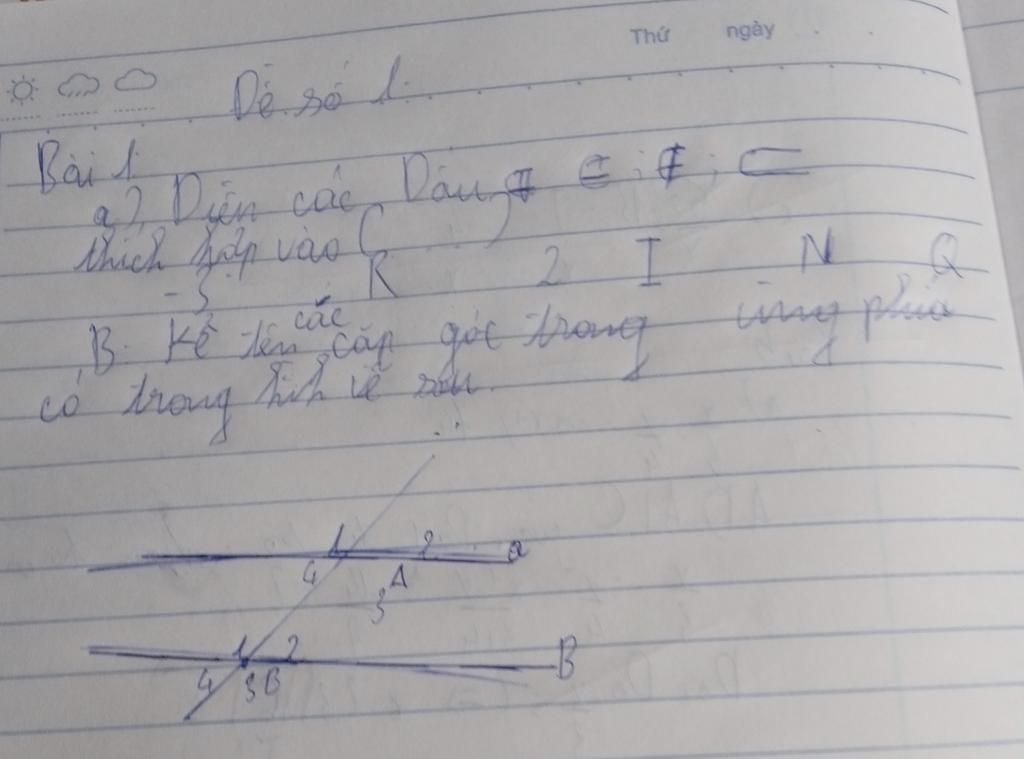 Thứ ngày
Đề số 1
Bài 1
a) Điền các Dấu ∈ ; ∉ ; ⊂
thích hợp vào ( )
-3 R 2 I N Q
B. Kể tên các cặp góc trong cùng phía
có trong hình vẽ sau.
1 2 a
4 A
3
1 2 B
4 3 B